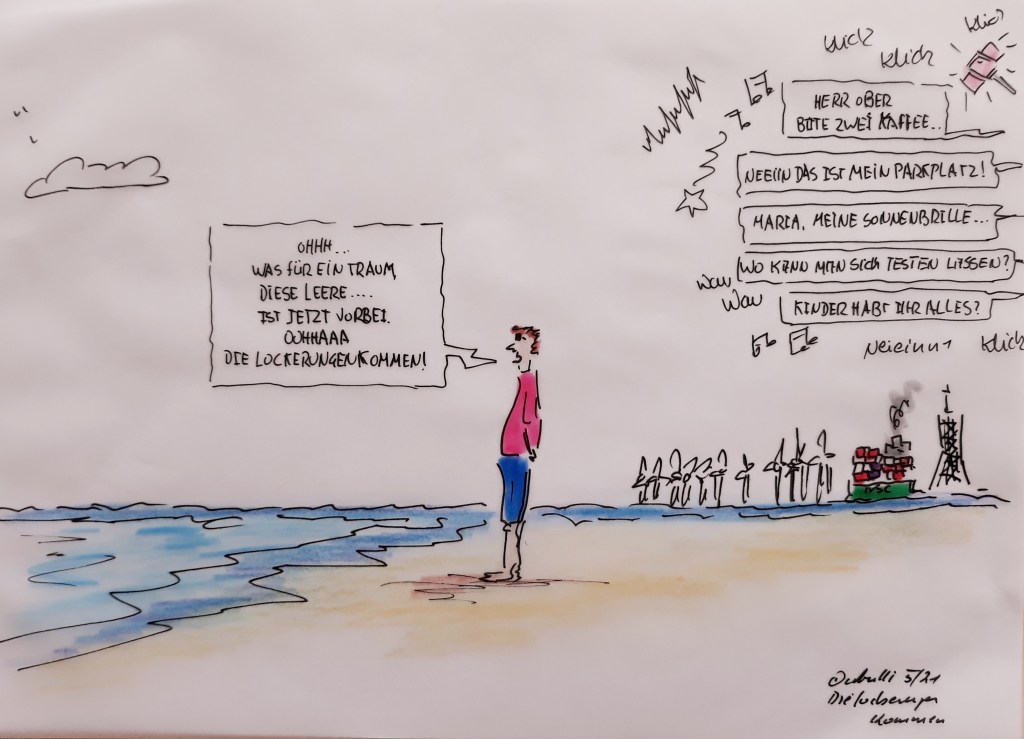 OHHH...
WAS FÜR EIN TRAUM,
DIESE LEERE....
IST JETZT VORBEI.
OOHHAAA
DIE LOCKERUNGEN KOMMEN!
klick
klick
klick
HERR OBER
BITTE ZWEI KAFFEE...
NEEIIN DAS IST MEIN PARKPLATZ!
MARIA, MEINE SONNENBRILLE...
WO KANN MAN SICH TESTEN LASSEN?
Wau
Wau
KINDER HABT IHR ALLES?
Neieinn
klick
MSC
5/21
Die Lockerungen
kommen